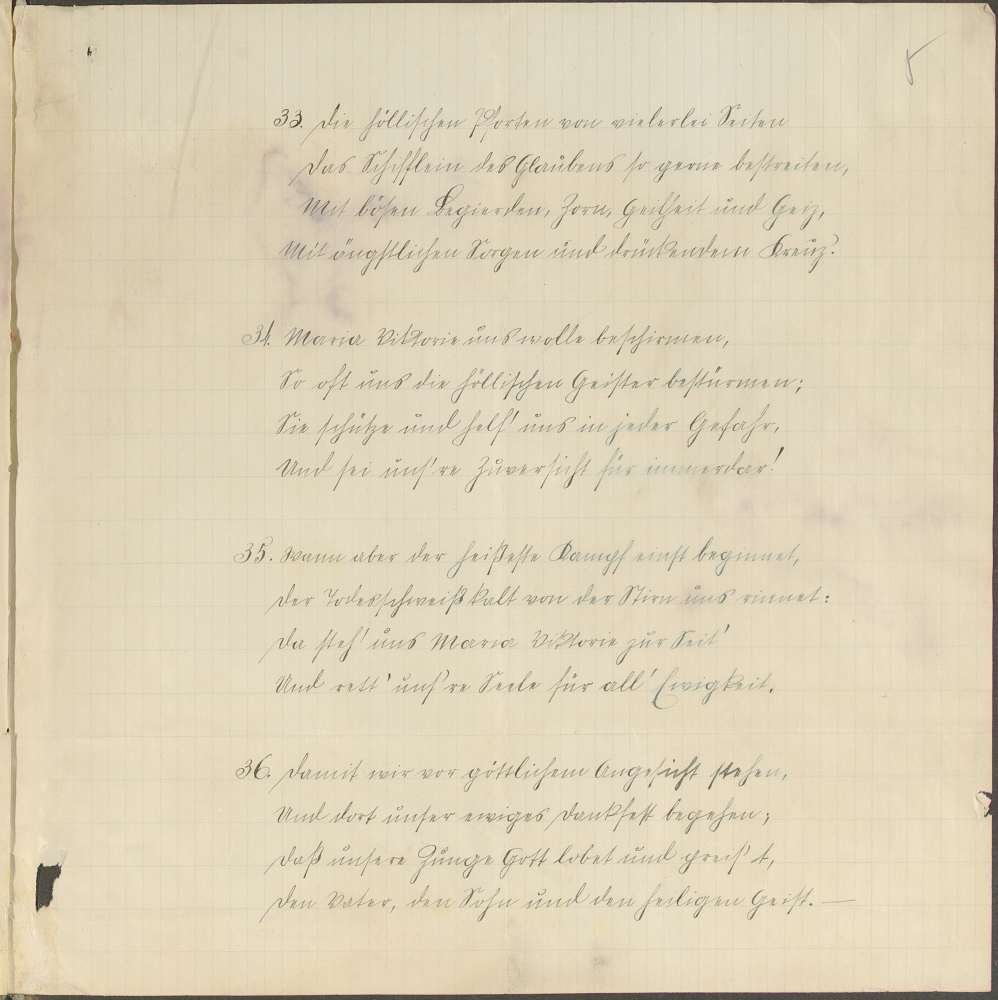 8
33. Die höllischen Pforten von vielerlei Seiten
Das Schifflein des Glaubens so gerne bestreiten,
Mit bösen Begierden, Zorn, Geilheit und Geiz,
Mit ängstlichen Sorgen und drückendem Kreuz.
34. Maria Viktorie uns wolle beschirmen,
So oft uns die höllischen Geister bestürmen;
Sie schütze und helf' uns in jeder Gefahr,
Und sei uns're Zuversicht für immerdar!
35. Wann aber der heißeste Kampf einst beginnet,
Der Todesschweiß kalt von der Stirn uns rinnet:
Da steh' uns Maria Viktorie zur Seit'
Und rett' uns're Seele für all' Ewigkeit.
36. Damit wir vor göttlichem Angesicht stehen,
Und dort unser ewiges Dankfest begehen;
Daß unsere Zunge Gott lobet und preis't,
Den Vater, den Sohn und den heiligen Geist. —